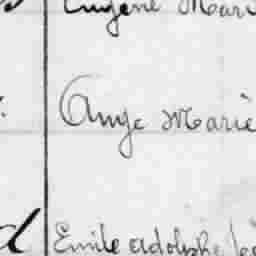 Eugène Marie
Ange Marie
Emile adolphe